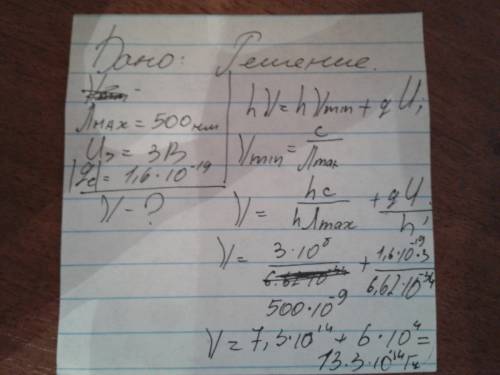 Дано: Решение.
λmax = 500 нм
U₃ = 3В
|qe| = 1,6·10⁻¹⁹
ν - ?
hν = hνmin + qU,
νmin = c/λmax
ν = hc/hλmax + qU/h,
ν = 3·10⁸/500·10⁻⁹ + 1,6·10⁻¹⁹·3/6,62·10⁻³⁴
ν = 7,3·10¹⁴ + 6·10⁴ =
13.3·10¹⁴ Гц